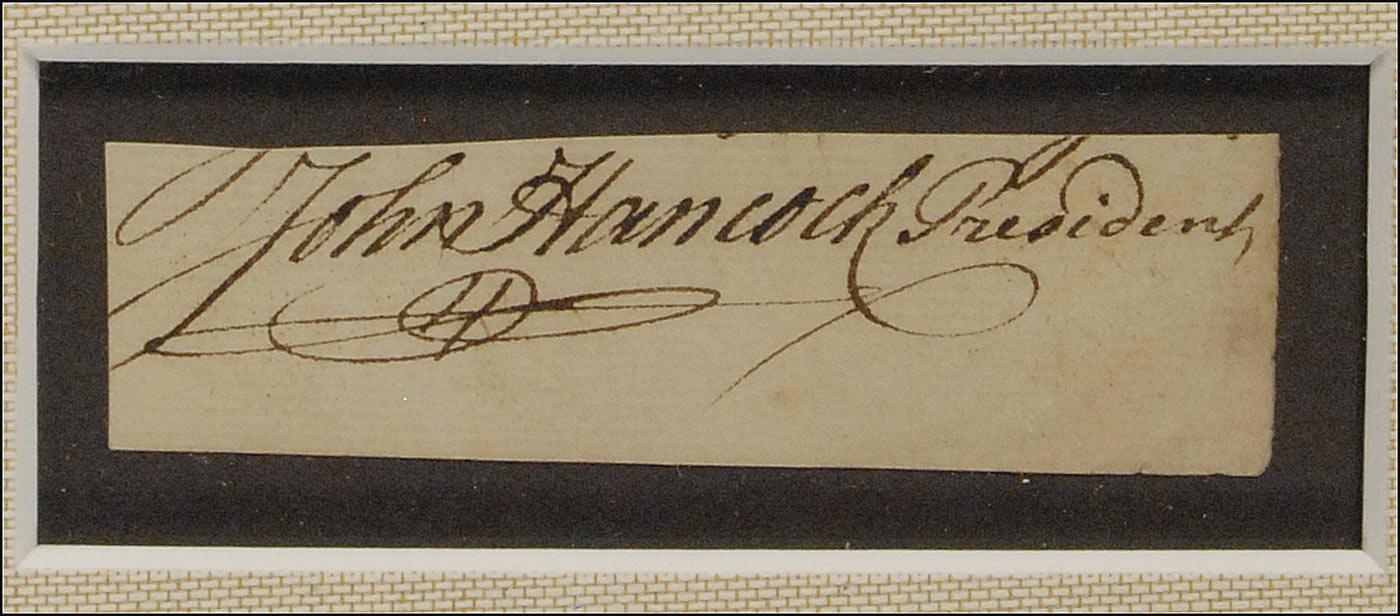 John Hancock President